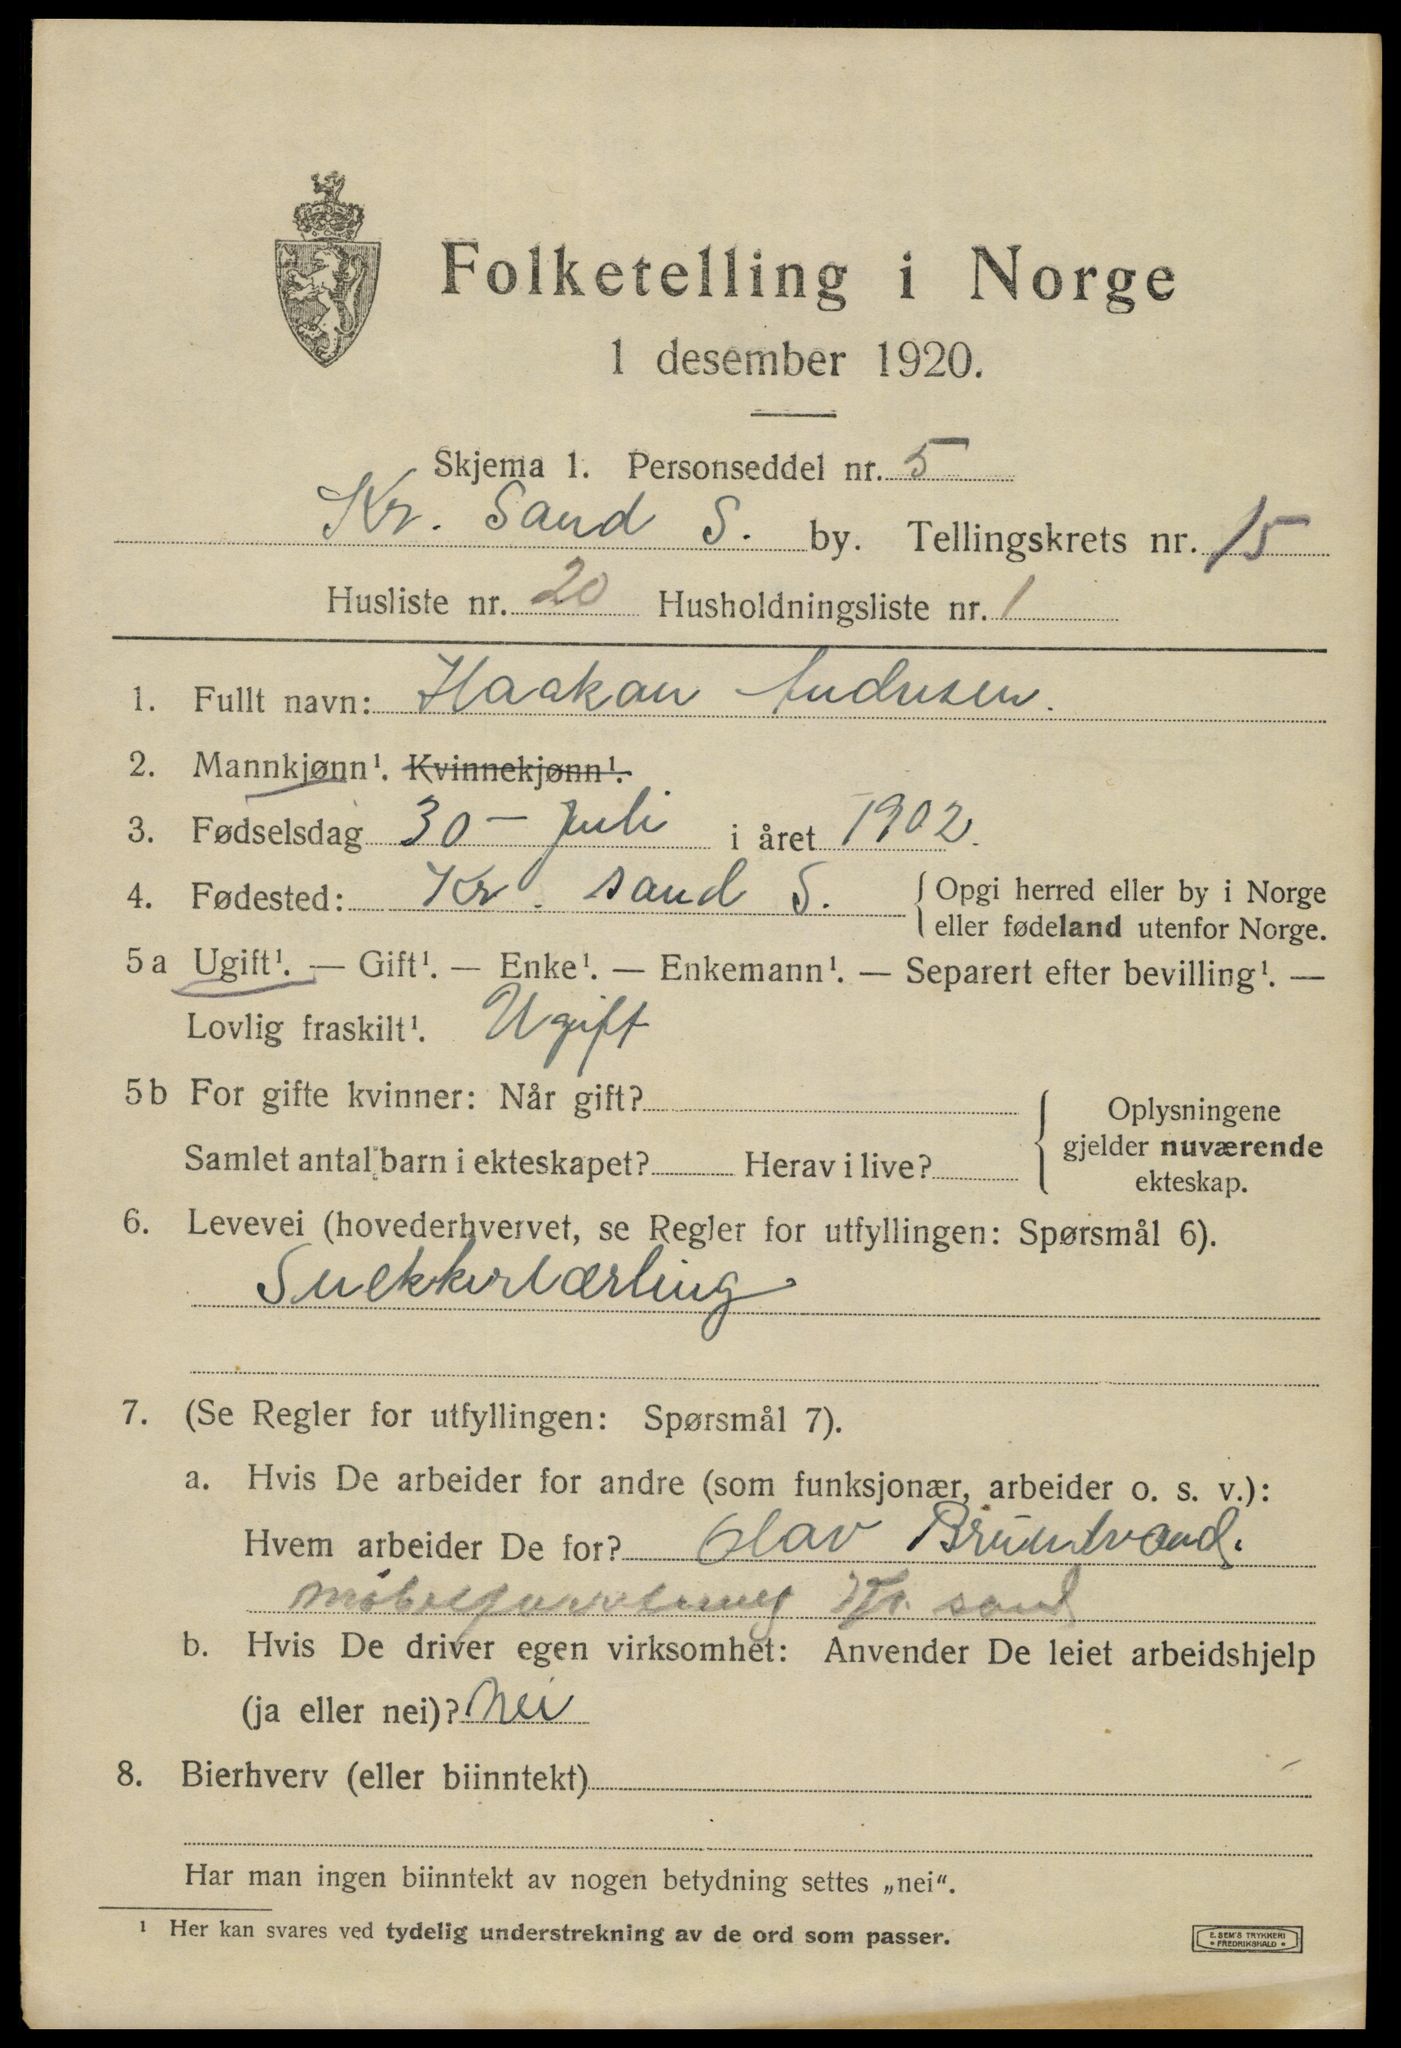 Folketelling i Norge
1 desember 1920.
Skjema 1. Personseddel nr. 5
Kr. Sand S. by. Tellingskrets nr. 15
Husliste nr. 20 Husholdningsliste nr. 1
1. Fullt navn: Haakon Andresen.
2. Mannkjønn¹. Kvinnekjønn¹.
3. Fødselsdag 30 - Juli i året 1902.
4. Fødested: Kr. sand S. { Opgi herred eller by i Norge
eller fødeland utenfor Norge.
5 a Ugift¹. — Gift¹. — Enke¹. — Enkemann¹. — Separert efter bevilling¹. —
Lovlig fraskilt¹. Ugift
5 b For gifte kvinner: Når gift?
Samlet antal barn i ekteskapet? Herav i live?
{ Oplysningene
gjelder nuværende
ekteskap.
6. Levevei (hovederhvervet, se Regler for utfyllingen: Spørsmål 6).
Snekkerlærling
7. (Se Regler for utfyllingen: Spørsmål 7).
a. Hvis De arbeider for andre (som funksjonær, arbeider o. s. v.):
Hvem arbeider De for? Olav
Kr. sand
b. Hvis De driver egen virksomhet: Anvender De leiet arbeidshjelp
(ja eller nei)? Nei
8. Bierhverv (eller biinntekt)
Har man ingen biinntekt av nogen betydning settes „nei“.
¹ Her kan svares ved tydelig understrekning av de ord som passer.
E. SEM'S TRYKKERI
• FREDRIKSHALD •